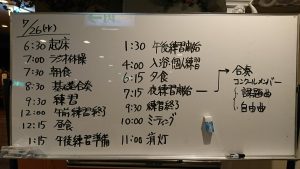 7/26(水)
6:30 起床
7:00 ラジオ体操
7:30 朝食
8:30 基礎合奏
9:30 練習
12:00 午前練習終了
12:15 昼食
1:15 午後練習準備
1:30 午後練習開始
4:00 入浴、個人練習
6:15 夕食
7:15 夜練習開始
9:30 練習終了
10:00 ミーティング
11:00 消灯
合奏
コンクールメンバー
課題曲
自由曲